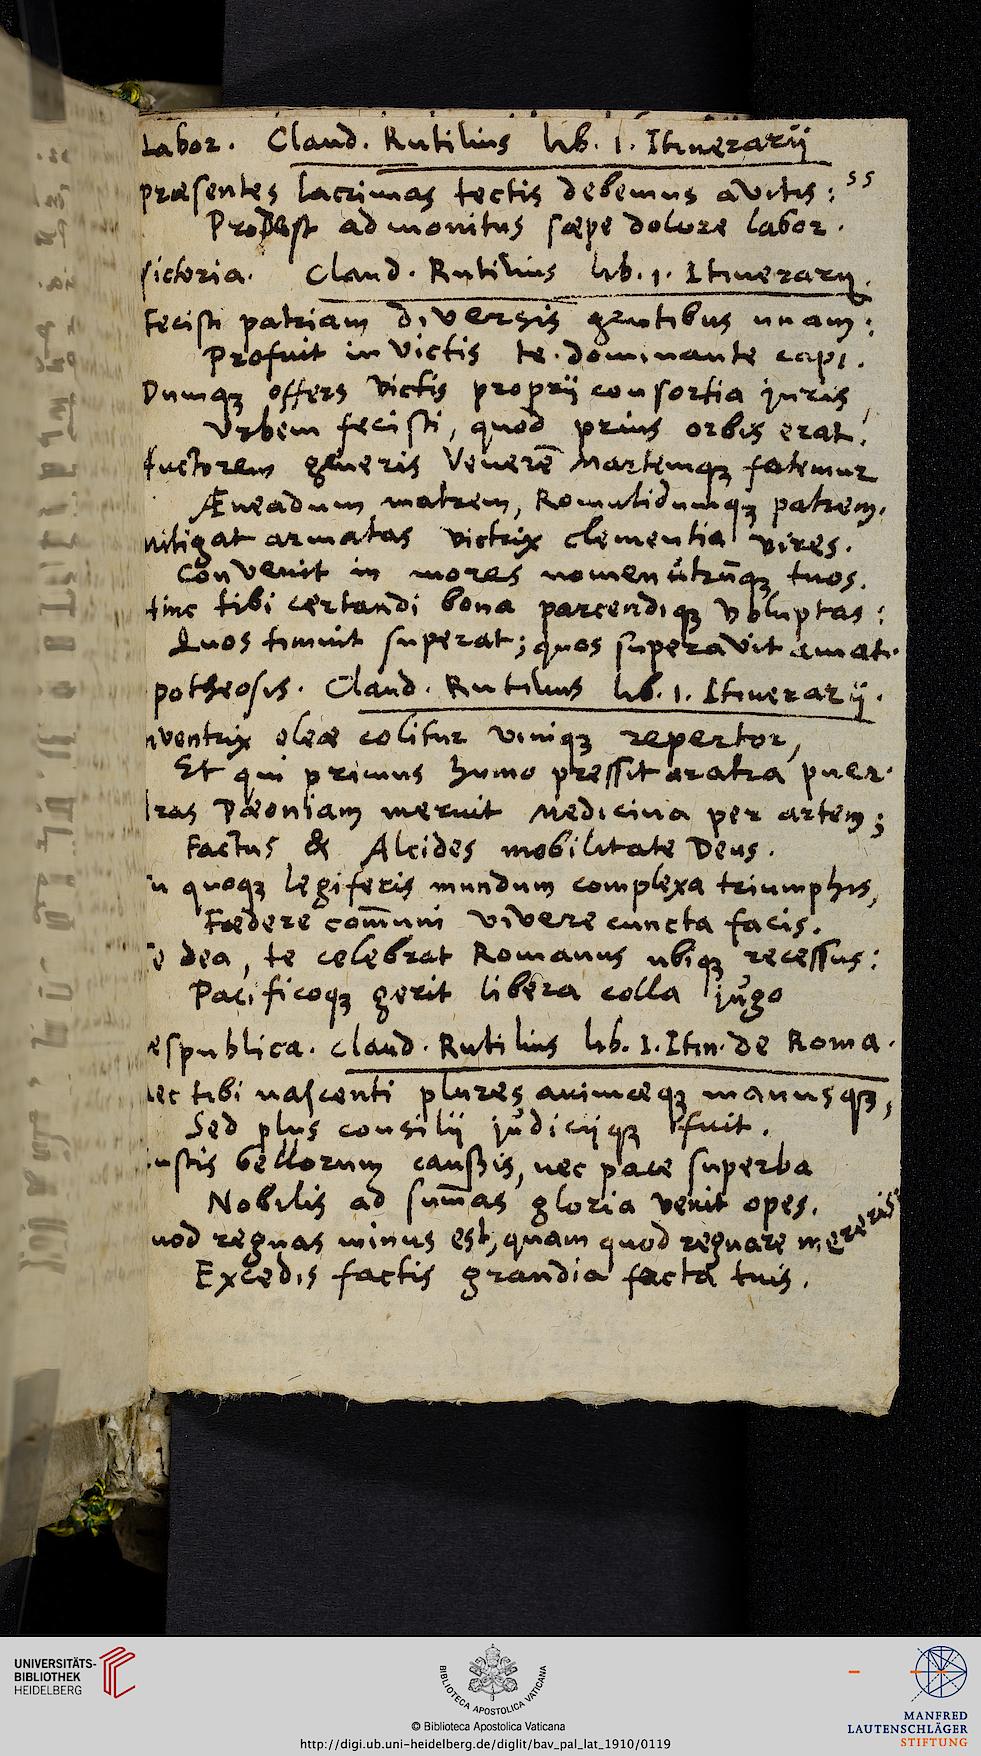 Labor. Claud. Rutilius lib. 1. Itinerarij
55
præsentes lacrimas tectis debemus avitis:
Prodest admonitus sæpe dolore labor.
Victoria. Claud. Rutilius lib. 1. Itinerarij.
Fecisti patriam diversis gentibus unam:
Profuit invictis te dominante capi.
Dumqȝ offers victis proprij consortia juris,
Vrbem fecisti, quod prius orbis erat.
Auctorem generis Venerē Martemqȝ fatemur
Æneadum matrem, Romulidumqȝ patrem.
mitigat armatas victrix clementia vires.
Convenit in mores nomen utrūqȝ tuos.
Hinc tibi certandi bona parcendiqȝ voluptas:
Quos timuit superat; quos superavit amat.
potheosis. Claud. Rutilius lib. 1. Itinerarij.
nventrix oleæ colitur viniqȝ repertor,
Et qui primus humo pressit aratra puer.
Aras Pæoniam meruit Medicina per artem;
Factus & Alcides mobilitate Deus.
Tu quoqȝ legiferis mundum complexa triumphis,
Fœdere com̄uni vivere cuncta facis.
Te dea, te celebrat Romanus ubiqȝ recessus:
Pacificoqȝ gerit libera colla jugo
espublica. Claud. Rutilius lib. 1. Itin. de Roma.
nec tibi nascenti plures animæqȝ manusqȝ,
Sed plus consilij judicijqȝ fuit.
iustis bellorum caussis, nec pace superba
Nobilis ad sum̄as gloria venit opes.
uod regnas minus est, quam quod regnare mereris
Excedis factis grandia facta tuis.
UNIVERSITÄTS-
BIBLIOTHEK
HEIDELBERG
BIBLIOTECA APOSTOLICA VATICANA
© Biblioteca Apostolica Vaticana
http://digi.ub.uni-heidelberg.de/diglit/bav_pal_lat_1910/0119
MANFRED
LAUTENSCHLÄGER
STIFTUNG